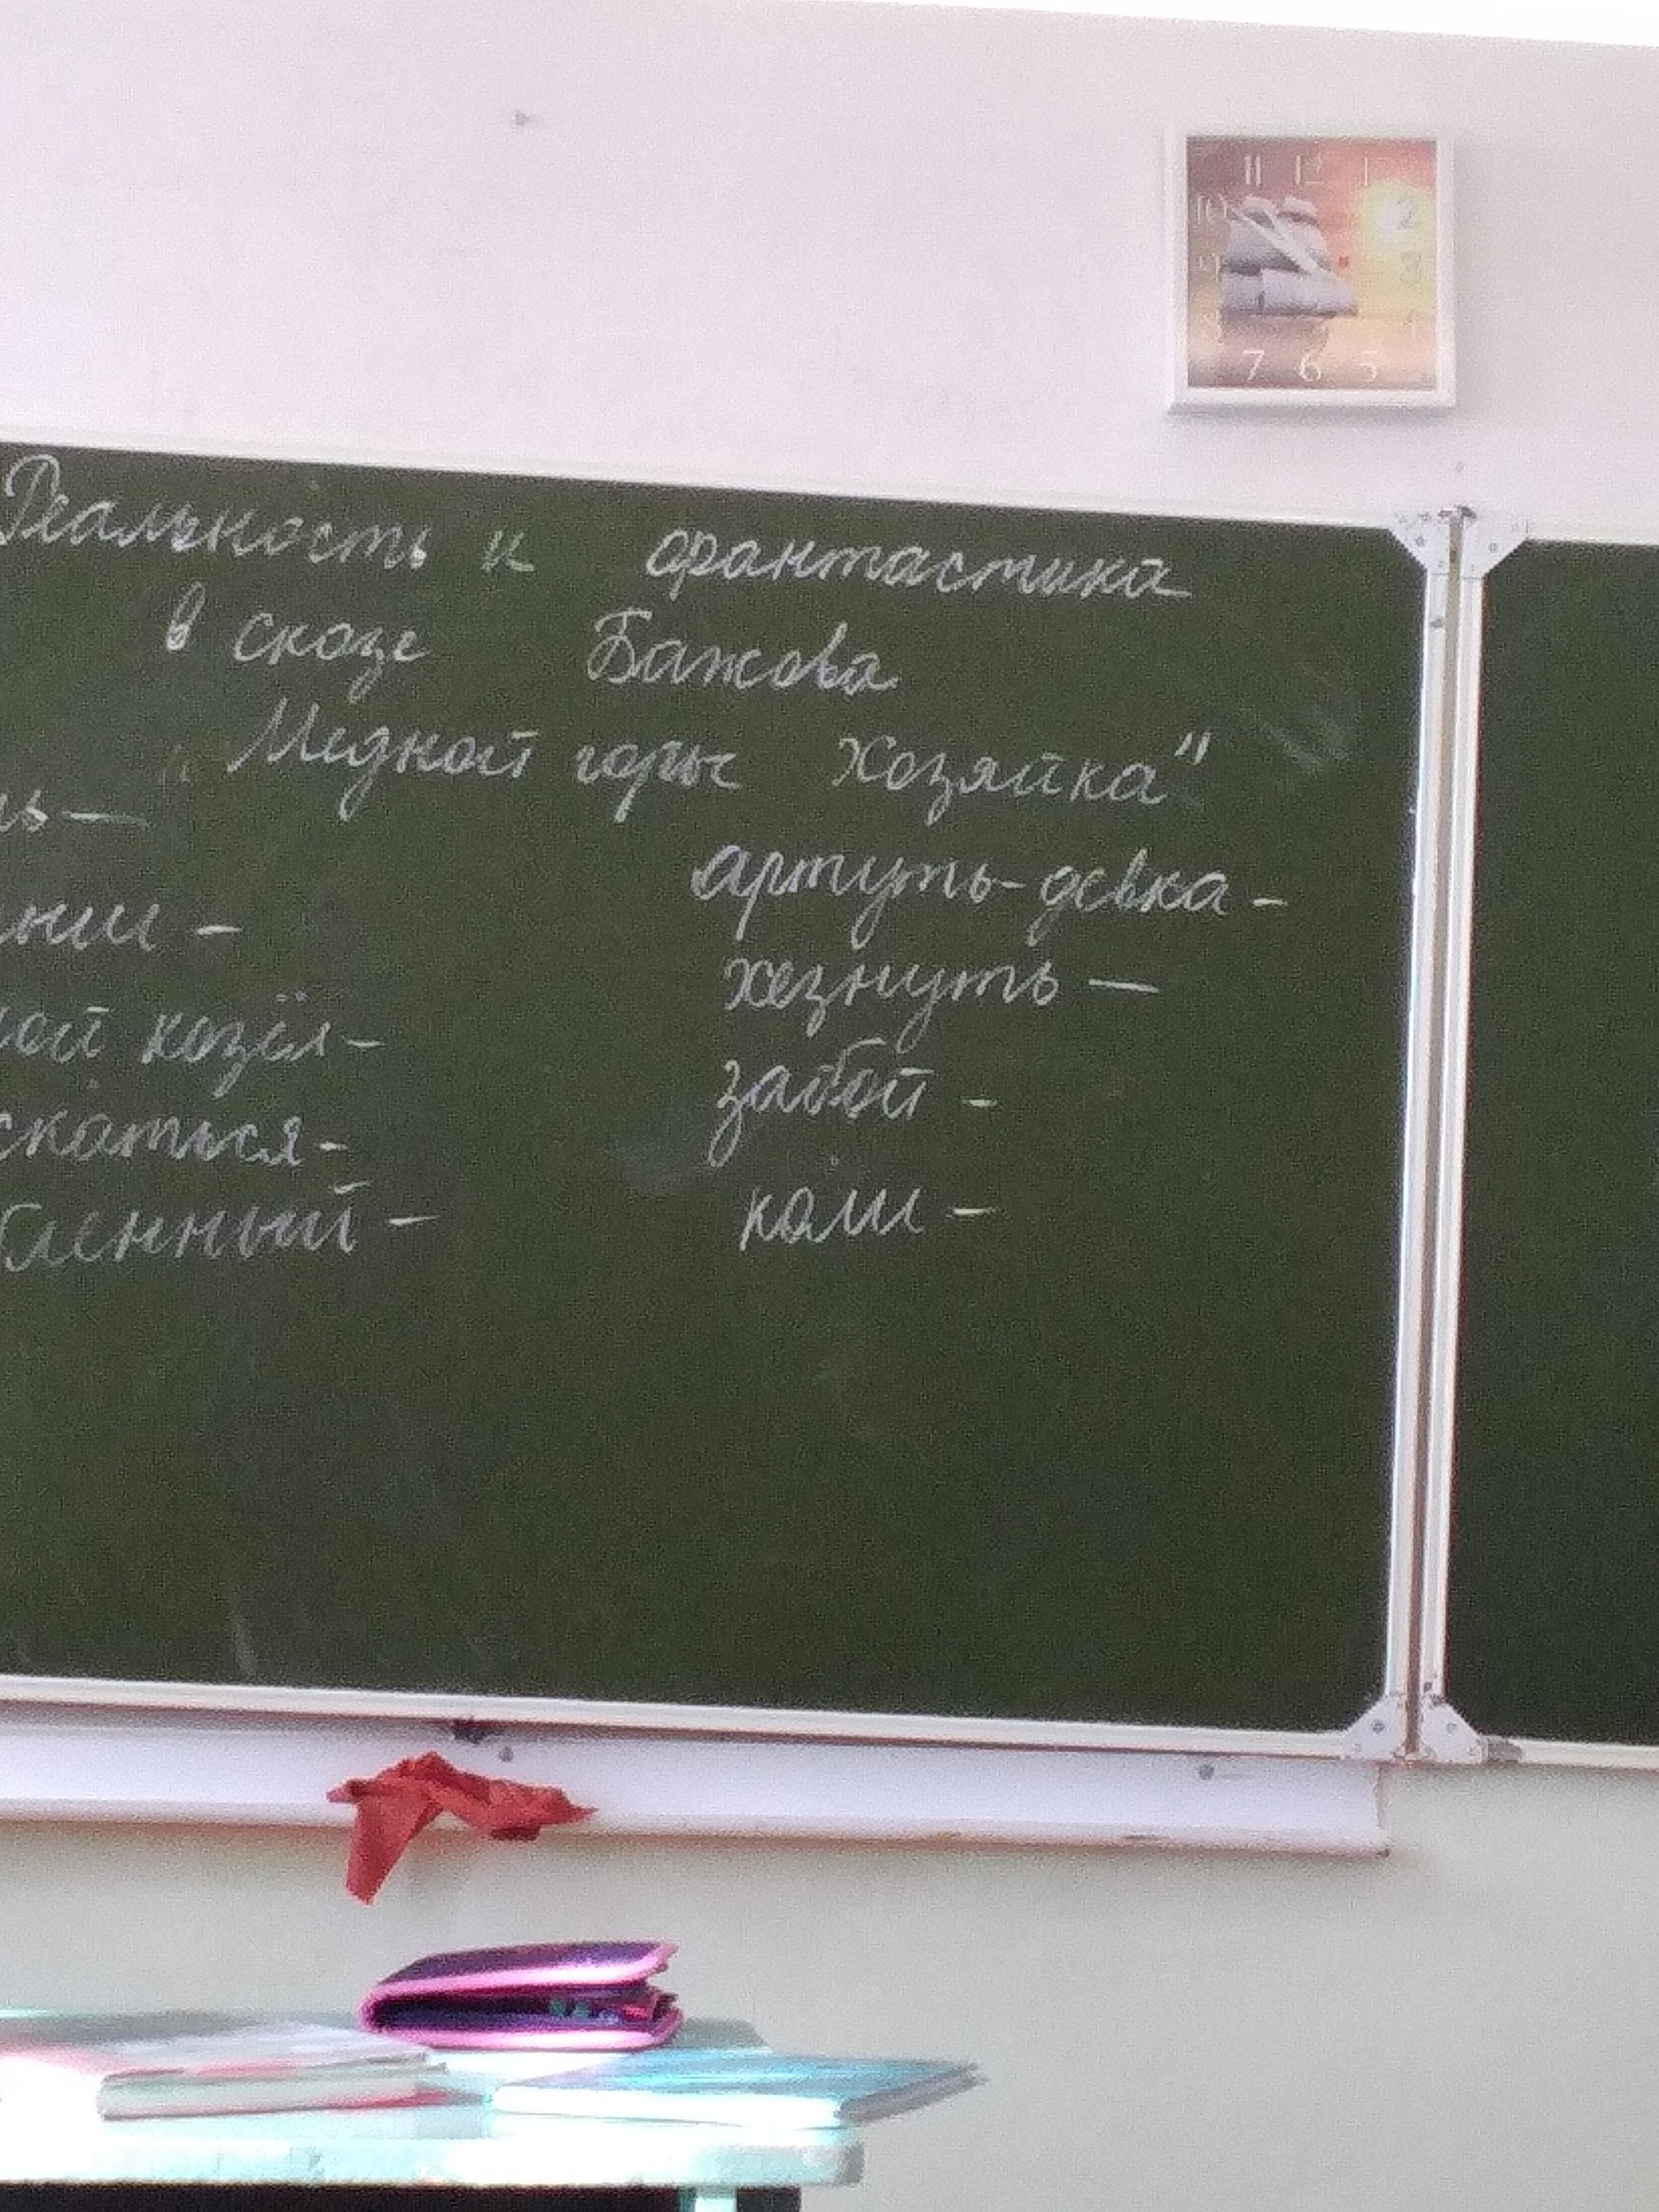 11 12 1
10 2
9 3
8 4
7 6 5
Реальность и фантастика
в сказе Бажова
"Медной горы Хозяйка"
ль - артуть-девка -
нии - хезнуть -
ой козёл - забой -
скаться - коли -
бленный -